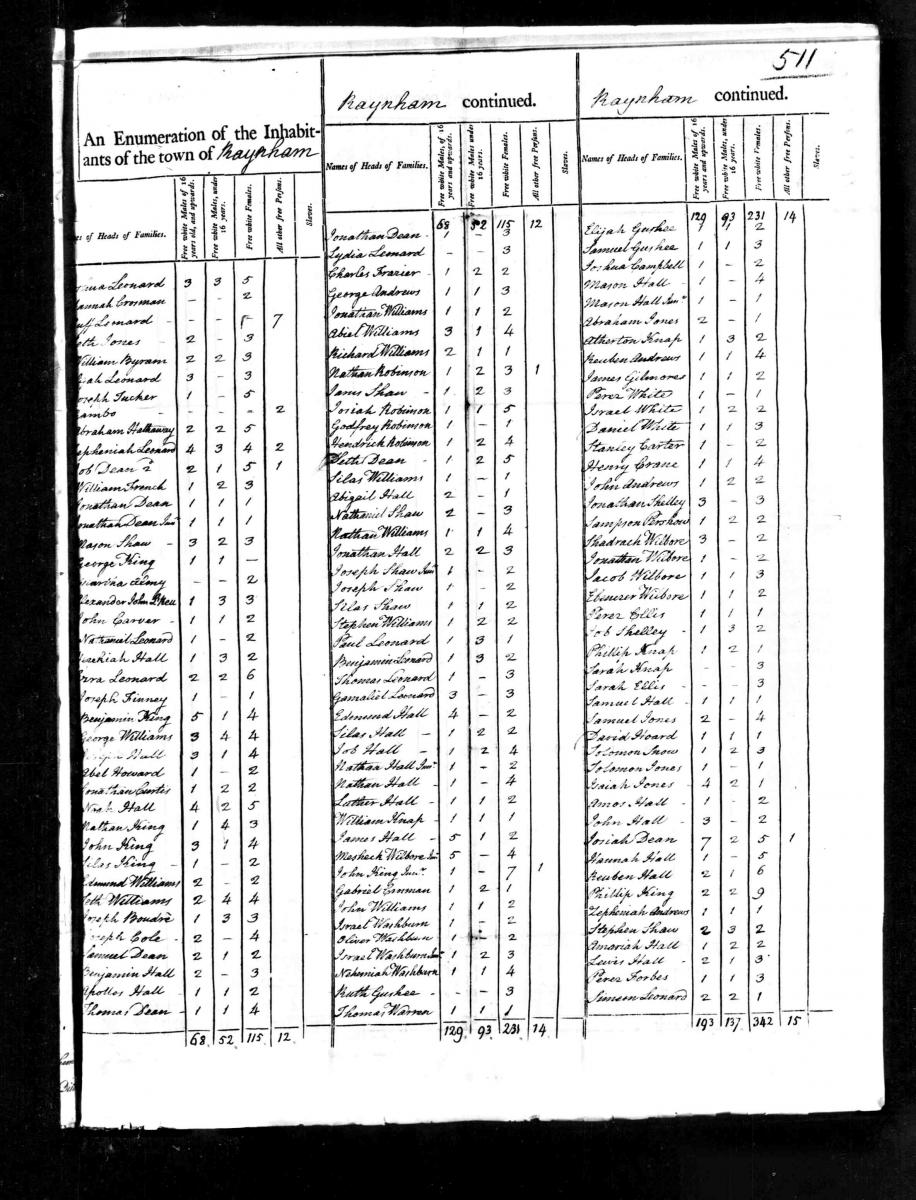 511
An Enumeration of the Inhabit-
ants of the town of Raynham
es of Heads of Families.
Free white Males of 16 years old, and upwards.
Free white Males, under 16 years.
Free white Females.
All other free Persons.
Slaves.
Leonard 3 3 5
annah Crosman – – 2
Leonard – – – 7
eth Jones 2 – 3
William Byram 2 2 3
Leonard 3 – 3
Joseph Tucker 1 – 5
ambo – – – 2
Abraham Hathaway 2 2 5
epheniah Leonard 4 3 4 2
ob Dean 2 2 1 5 1
William French 1 2 3
Jonathan Dean 1 1 1
onathan Dean Junr 1 1 1
Mason Shaw – 3 2 3
George King 1 1 –
– – 2
Alexander John 1 3 3
John Carver – 1 1 2
Nathaniel Leonard 1 – 2
Hall 1 3 2
Ezra Leonard 2 2 6
Joseph Finney 1 – 1
Benjamin King 5 1 4
George Williams 3 4 4
Hall 3 1 4
Abel Howard 1 – 2
Jonathan Curtis 1 2 2
Noah Hall 4 2 5
Nathan King 1 4 3
John King 3 1 4
Silas King – 1 – 2
Edmund Williams 2 – 2
Seth Williams 2 4 4
Joseph Boudre 1 3 3
Joseph Cole – 2 – 4
Samuel Dean 2 1 2
Benjamin Hall 2 – 3
Apollos Hall – 1 1 2
Thomas Dean – 1 1 4
68 52 115 12
Raynham continued.
Names of Heads of Families.
Free white Males, of 16 years and upwards.
Free white Males under 16 years.
Free white Females.
All other free Persons.
Slaves.
68 52 115 12
Jonathan Dean – 1 – 3
Lydia Leonard – – 3
Charles Frazier – 1 2 2
George Andrews 1 1 3
Jonathan Williams 1 1 2
Abiel Williams 3 1 4
Richard Williams 2 1 1
Nathan Robinson 1 2 3 1
Shaw – 1 2 3
Josiah Robinson 1 1 5
Godfrey Robinson 1 – 1
Hendrick Robinson 1 2 4
Seth Dean – 1 2 5
Silas Williams 1 – 1
Abigail Hall 2 – 1
Nathaniel Shaw 2 – 3
Nathan Williams 1 1 4
Jonathan Hall 2 2 3
Joseph Shaw Junr 1 – 2
Joseph Shaw – 1 – 2
Silas Shaw 1 1 2
Stephen Williams 1 2 2
Paul Leonard 1 3 1
Benjamin Leonard 1 3 2
Thomas Leonard 1 – 3
Gamaliel Leonard 3 – 3
Edmund Hall 4 – 2
Silas Hall – 1 2 2
Job Hall – 1 2 4
Nathan Hall Junr 1 – 2
Nathan Hall 1 – 4
Luther Hall – 1 1 2
William Knap – 1 1 1
James Hall 5 1 2
Mesheck Wilbore Junr 5 – 4
John King Junr 1 – 7 1
Gabriel 1 2 1
John Williams 1 1 2
Israel Washburn 1 – 2
Oliver Washburn 1 – 2
Israel Washburn Junr 1 2 3
Nehemiah Washburn 1 1 4
Ruth Gushee – – 3
Thomas Warren 1 1 1
129 93 231 14
Raynham continued.
Names of Heads of Families.
Free white Males, of 16 years and upwards.
Free white Males, under 16 years.
Free white Females.
All other free Persons.
Slaves.
129 93 231 14
Elijah Gushee 1 1 2
Samuel Gushee 1 1 3
Joshua Campbell 1 – 2
Mason Hall – 1 – 4
Mason Hall Junr 1 – 1
Abraham Jones 2 – 1
Atherton Knap 1 3 2
Reuben Andrews 1 1 4
James Gilmores 1 1 2
Perez White 1 – 1
Israel White 1 2 2
Daniel White 1 1 3
Stanley Carter 1 – 2
Henry Crane 1 1 4
John Andrews 1 2 2
Jonathan Shelley 3 – 3
Sampson 1 2 2
Shadrach Wilbore 3 – 2
Jonathan Wilbore 1 – 2
Jacob Wilbore 1 1 3
Ebenezer Wilbore 1 1 2
Perez Ellis 1 1 1
Job Shelley – 1 3 2
Phillip Knap 1 2 1
Sarah Knap – – 3
Sarah Ellis – – – 3
Samuel Hall – 1 1 1
Samuel Jones 2 – 4
David Hoard 1 1 1
Solomon Snow 1 2 3
Solomon Jones 1 – 1
Isaiah Jones – 4 2 1
Amos Hall – 1 – 2
John Hall 3 – 2
Josiah Dean 7 2 5 1
Hannah Hall 1 – 5
Reuben Hall 2 1 6
Phillip King 2 2 9
Zepheniah Andrews 1 1 1
Stephen Shaw 2 3 2
Amariah Hall 1 2 2
Lewis Hall – 2 1 3
Perez Forbes 1 1 3
Simeon Leonard 2 2 1
193 137 342 15